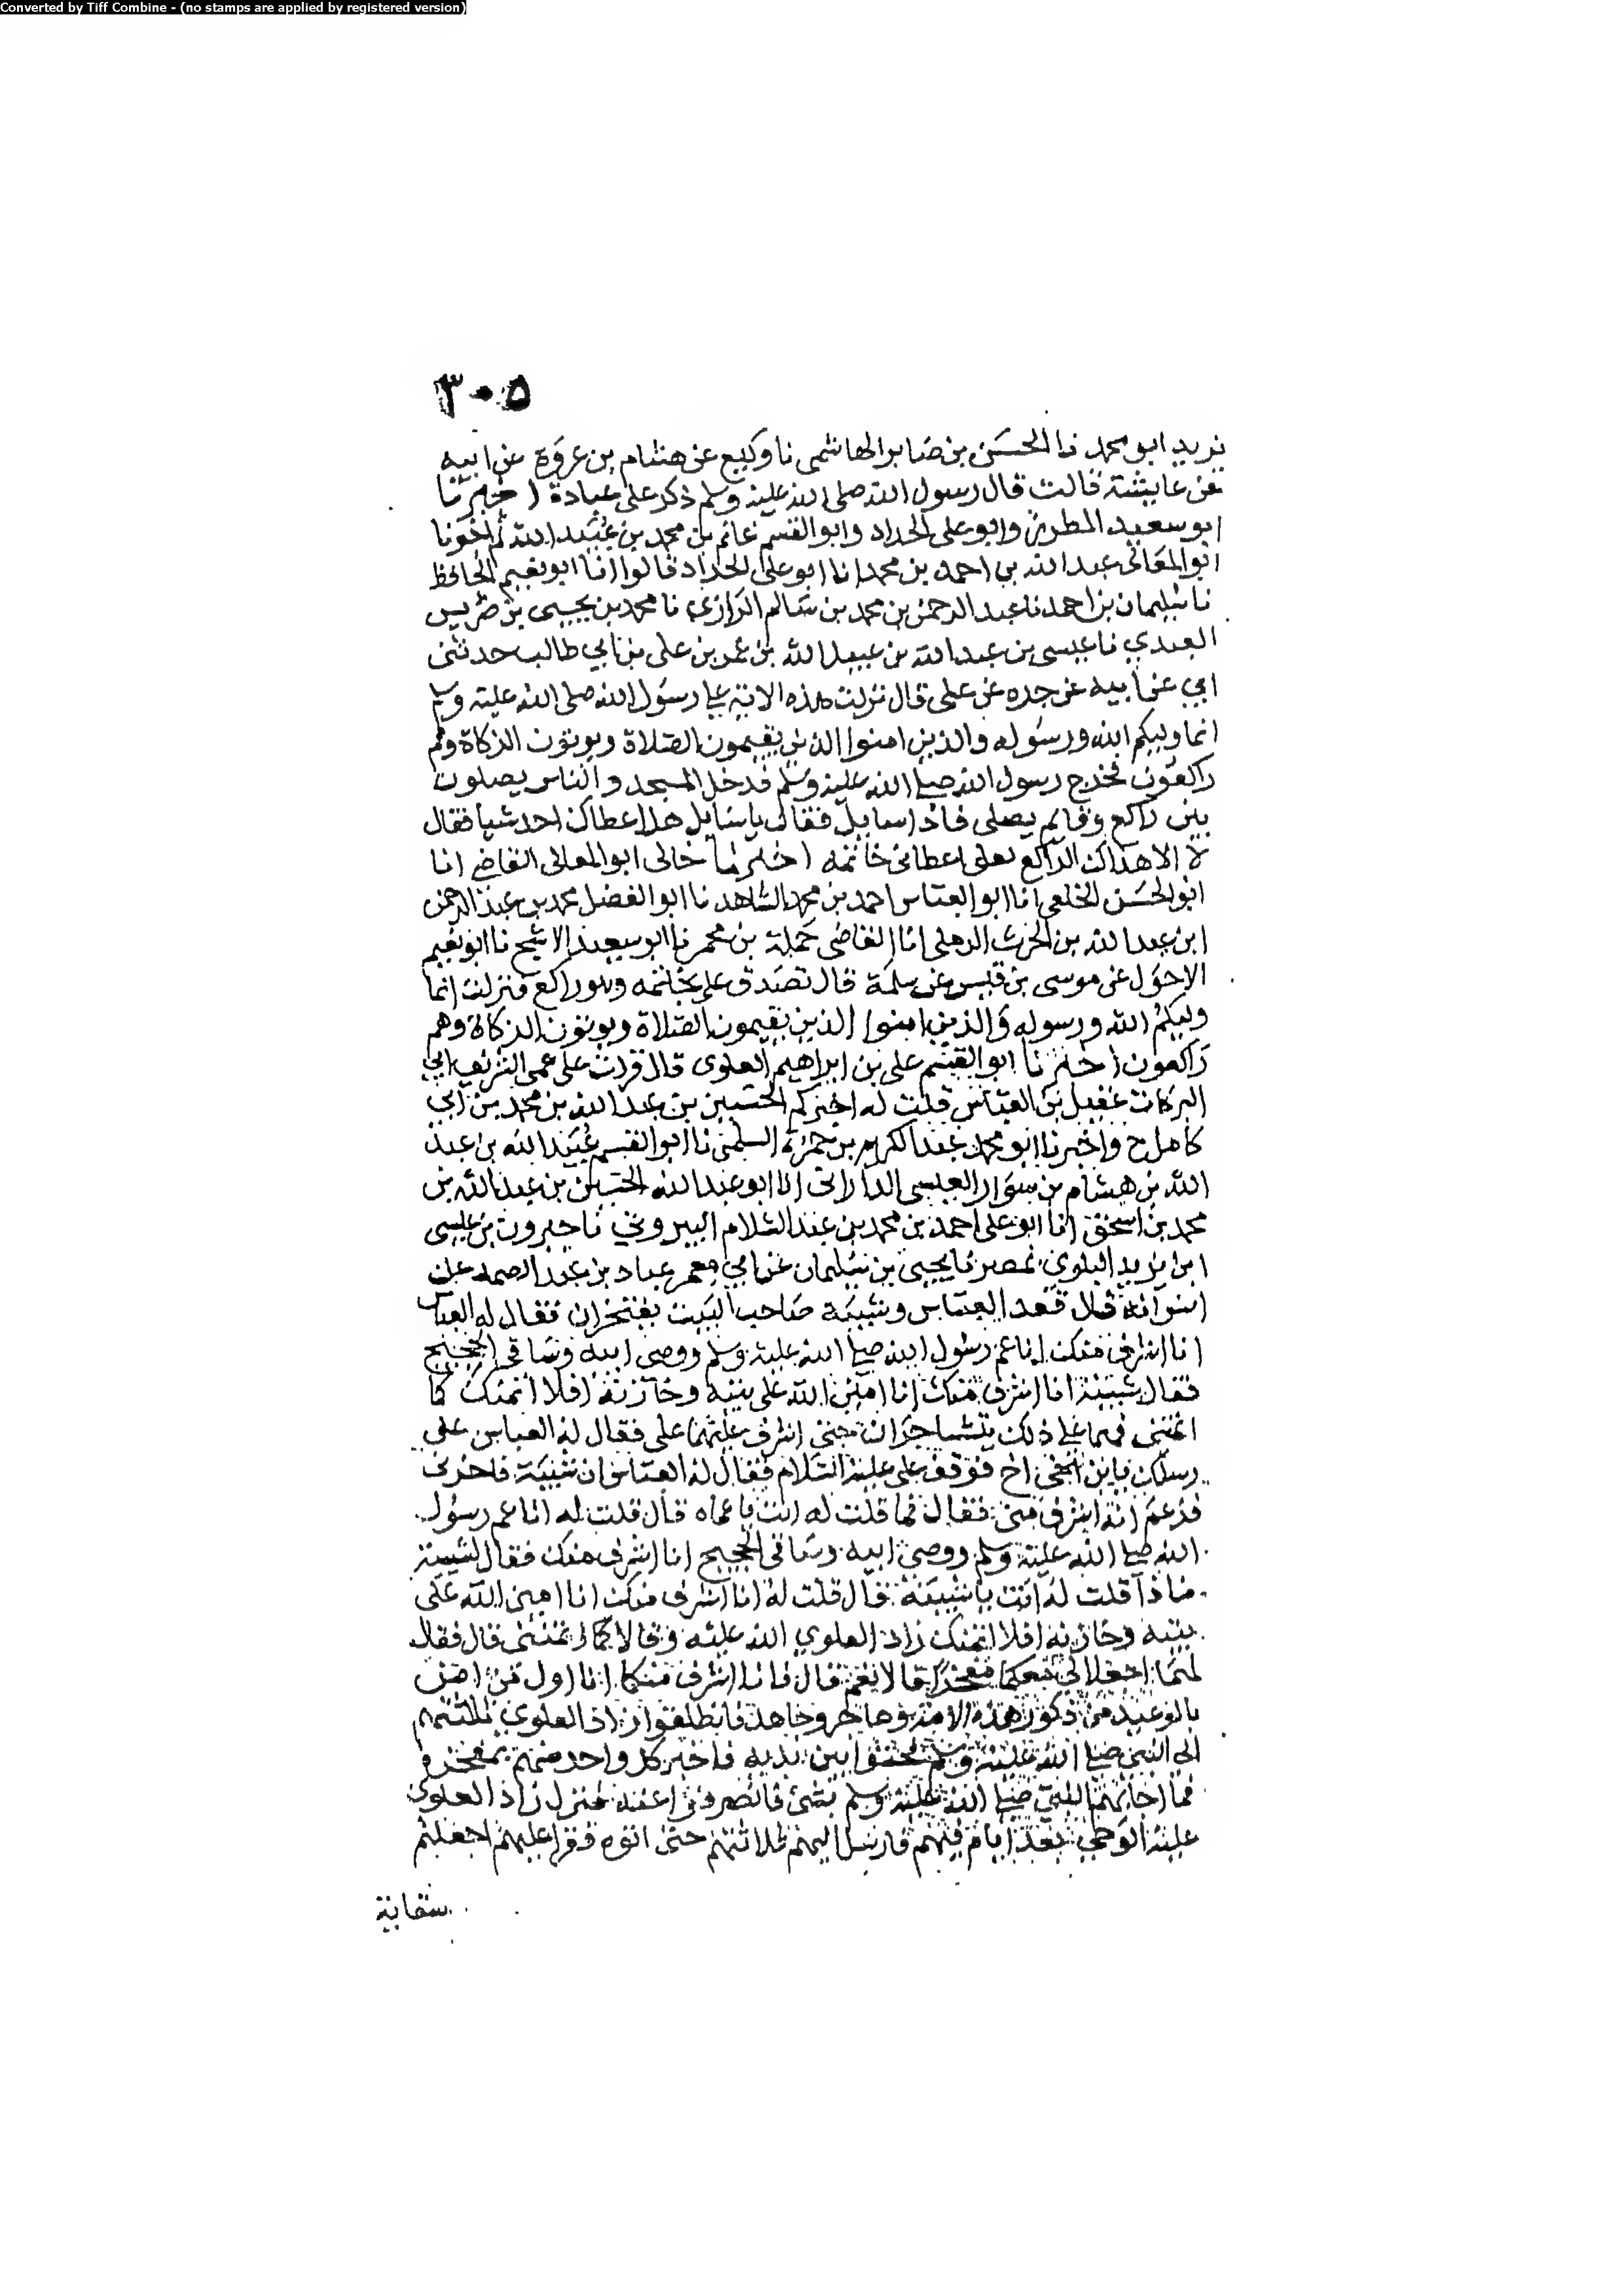 Converted by Tiff Combine - (no stamps are applied by registered version)
٣٠٥
يزيد ابو محمد نا الحسن بن صابر الهاشمي نا وكيع عن هشام بن عروة عن ابيه
عن عايشة قالت قال رسول الله صلى الله عليه وسلم ذكر علي عبادة اخبرنا
ابو سعيد المطرز وابو علي الحداد وابو القسم غانم بن محمد بن عبيد الله ثم اخبرنا
ابو المعالي عبد الله بن احمد بن محمد انا ابو علي الحداد قالوا انا ابو نعيم الحافظ
نا سليمان بن احمد نا عبد الرحمن بن محمد بن سالم الرازي نا محمد بن يحيى بن ضريس
العبدي نا عيسى بن عبد الله بن عبيد الله بن عمر بن علي بن ابي طالب حدثني
ابي عن ابيه عن جده عن علي قال نزلت هذه الاية على رسول الله صلى الله عليه وسلم
انما وليكم الله ورسوله والذين امنوا الذين يقيمون الصلاة ويوتون الزكاة وهم
راكعون فخرج رسول الله صلى الله عليه وسلم فدخل المسجد والناس يصلون
بين راكع وقايم يصلي فاذا سايل فقال يا سايل هل اعطاك احد شيا فقال
لا الا هذاك الراكع لعلي اعطاني خاتمه اخبرنا خالي ابو المعالي القاضي انا
ابو الحسن الخلعي انا ابو العباس احمد بن محمد الشاهد نا ابو الفضل محمد بن عبد الرحمن
ابن عبد الله بن الحرث الرملي انا القاضي حملة بن محمر نا ابو سعيد الاشج نا ابو نعيم
الاحول عن موسى بن قيس عن سلمة قال تصدق علي بخاتمه وهو راكع فنزلت انما
وليكم الله ورسوله والذين امنوا الذين يقيمون الصلاة ويوتون الزكاة وهم
راكعون اخبرنا ابو القسم علي بن ابراهيم العلوي قال قرات على عمي الشريف ابي
البركات عقيل بن العباس قلت له اخبركم الحسين بن عبد الله بن محمد بن ابي
كامل ح واخبرنا ابو محمد عبد الكريم بن حمزة السلمي نا ابو القسم عبيد الله بن عبد
الله بن هشام بن سوار العبسي الداراني انا ابو عبد الله الحسين بن عبد الله بن
محمد بن اسحق انا ابو علي احمد بن محمد بن عبد السلام البيروتي نا خيرون بن عيسى
ابن يزيد البلوي بمصر نا يحيى بن سليمان عن ابي معمر عباد بن عبد الصمد عن
انس انه قال قعد العباس وشيبة صاحب البيت يفتخران فقال له العباس
انا اشرف منك انا عم رسول الله صلى الله عليه وسلم ووصي ابيه وساقي الحجيج
فقال شيبة انا اشرف منك انا امين الله على بيته وخازنه افلا ائتمنك كما
ائتمنني فهما على ذلك يتشاجران حتى اشرف عليهما علي فقال له العباس على
رسلك يا ابن اخي اخ فوقف علي عليه السلام فقال له العباس ان شيبة فاخرني
فزعم انه اشرف مني فقال فما قلت له انت يا عماه قال قلت له انا عم رسول
الله صلى الله عليه وسلم ووصي ابيه وساقي الحجيج انا اشرف منك فقال لشيبة
ماذا قلت له انت يا شيبة قال قلت له انا اشرف منك انا امين الله على
بيته وخازنه افلا ائتمنك زاد العلوي الله عليه وقالا كما ائتمنني قال فقال
لهما اجعلا لي معكما مفخرا قالا نعم قال فانا اشرف منكما انا اول من امن
بالوعيد من ذكور هذه الامة وهاجر وجاهد فانطلقوا زاد العلوي ثلاثتهم
الى النبي صلى الله عليه وسلم فجثوا بين يديه فاخبر كل واحد منهم بمفخره
فما اجابهم النبي صلى الله عليه وسلم بشيء فانصرفوا عنه فنزل زاد العلوي
عليه الوحي بعد ايام فيهم فارسل اليهم ثلاثتهم حتى اتوه فقرا عليهم اجعلتم
سقاية